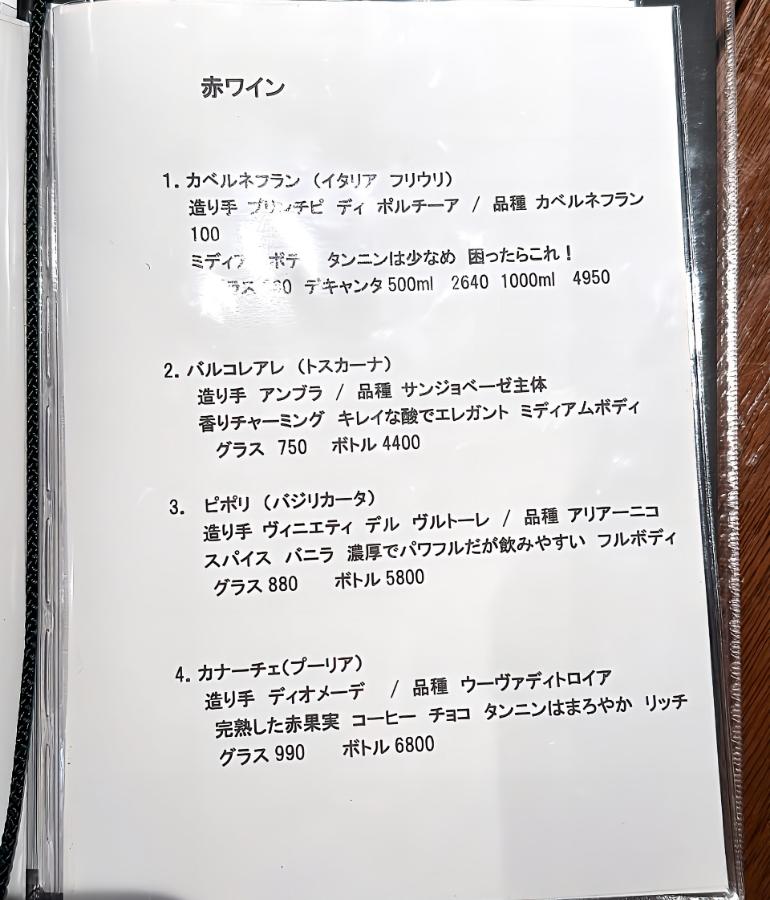 赤ワイン
1. カベルネフラン （イタリア フリウリ）
造り手 プリンチピ ディ ポルチーア / 品種 カベルネフラン
100
ミディア ボデ タンニンは少なめ 困ったらこれ！
グラス デキャンタ 500ml 2640 1000ml 4950
2. バルコレアレ （トスカーナ）
造り手 アンブラ / 品種 サンジョベーゼ主体
香りチャーミング キレイな酸でエレガント ミディアムボディ
グラス 750 ボトル 4400
3. ピポリ （バジリカータ）
造り手 ヴィニエティ デル ヴルトーレ / 品種 アリアーニコ
スパイス バニラ 濃厚でパワフルだが飲みやすい フルボディ
グラス 880 ボトル 5800
4. カナーチェ（プーリア）
造り手 ディオメーデ / 品種 ウーヴァディトロイア
完熟した赤果実 コーヒー チョコ タンニンはまろやか リッチ
グラス 990 ボトル 6800